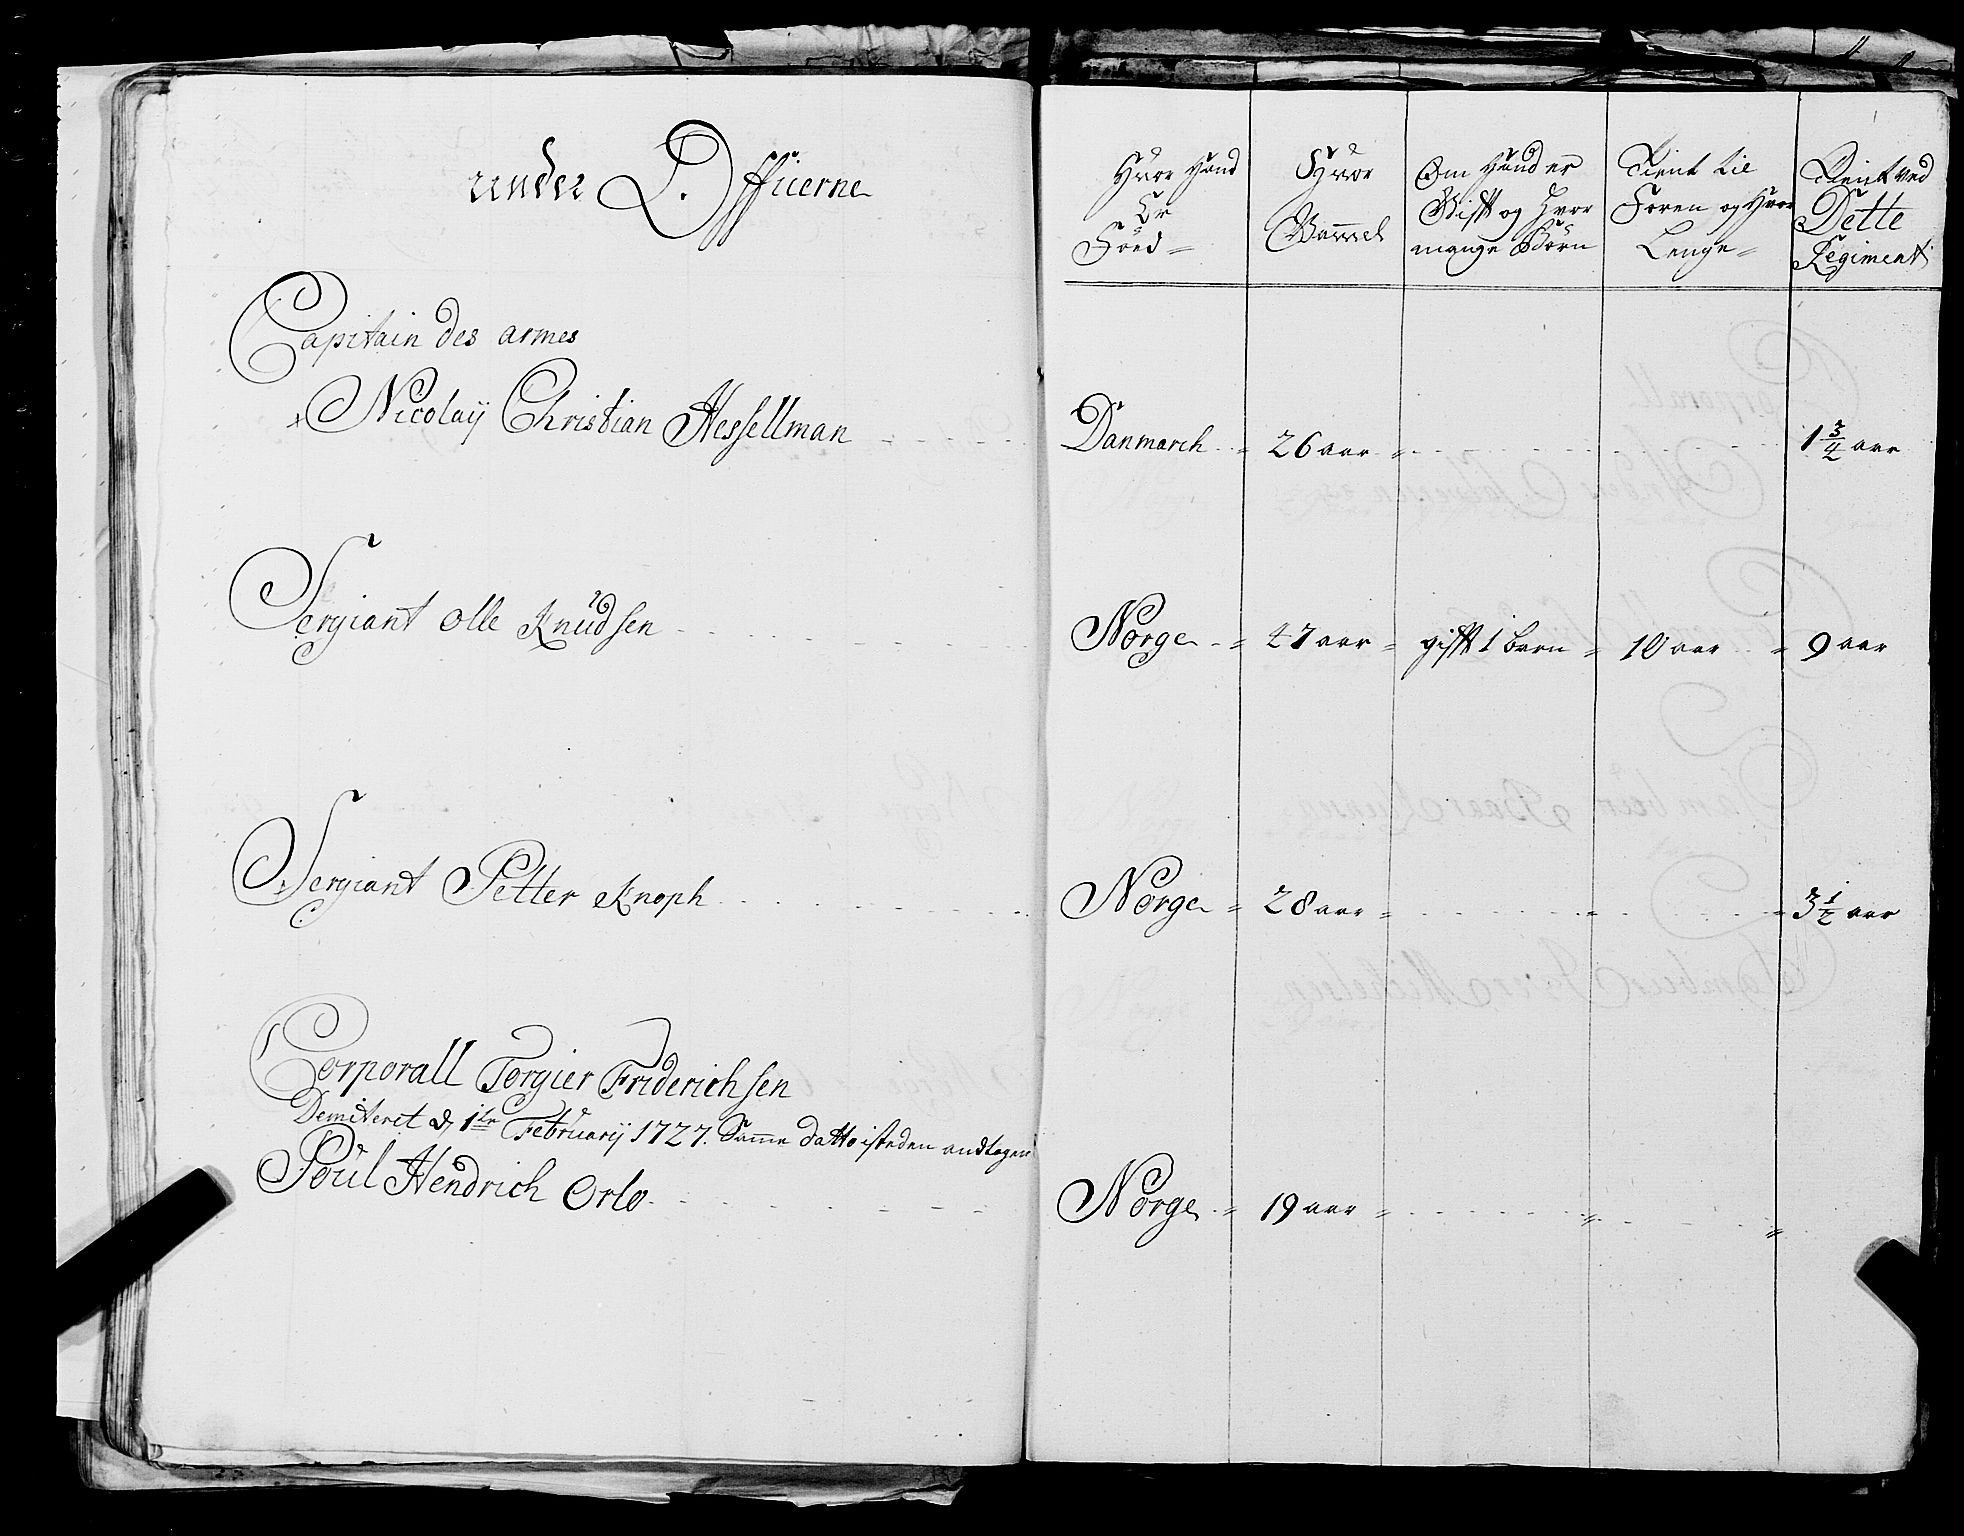 under Officerne
Capitain des armes
Nicolaÿ Christian Hessellman
Sergiant Olle Knudsen
Sergiant Petter Knoph
Corporall Torgier Friderichsen
Demiteret d 1te Februarÿ 1727. Samme datto isteden andtagen
Poul Hendrich Orlo
Hvor Hand Er Föed
Hvor Gammel
Om Hand er Gifft og Hvor mange Börn
Tient til Foren og Hvor Lenge
Tient ved Dette Regiment
Danmarch 26 aar 1 3/4 aar
Norge 47 aar gifft 1 barn 10 aar 9 aar
Norge 28 aar 3 1/2 aar
Norge 19 aar